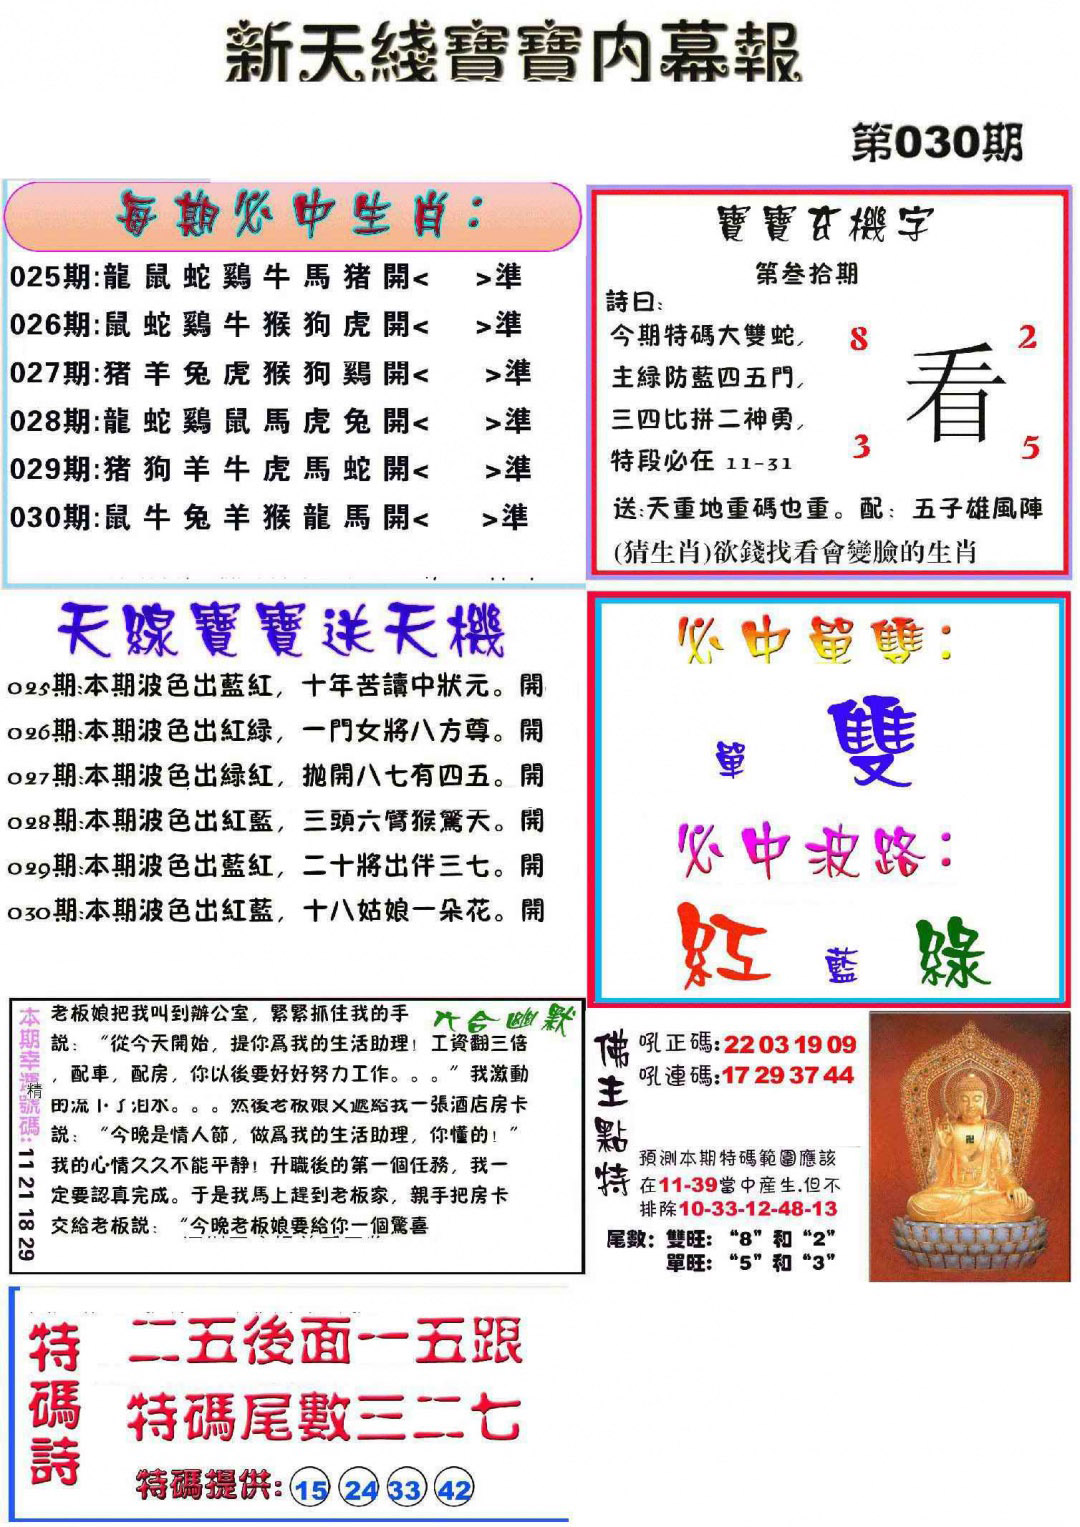 新天綫寶寶内幕報
第030期
每期必中生肖：
025期:龍鼠蛇鷄牛馬猪開< >準
026期:鼠蛇鷄牛猴狗虎開< >準
027期:猪羊兔虎猴狗鷄開< >準
028期:龍蛇鷄鼠馬虎兔開< >準
029期:猪狗羊牛虎馬蛇開< >準
030期:鼠牛兔羊猴龍馬開< >準
寶寶玄機字
第叁拾期
詩曰:
今期特碼大雙蛇,
主緑防藍四五門,
三四比拼二神勇,
特段必在 11-31
8
2
看
3
5
送:天重地重碼也重。配：五子雄風陣
(猜生肖)欲錢找看會變臉的生肖
天線寶寶送天機
025期:本期波色出藍紅，十年苦讀中狀元。開
026期:本期波色出紅緑，一門女將八方尊。開
027期:本期波色出緑紅，抛開八七有四五。開
028期:本期波色出紅藍，三頭六臂猴驚天。開
029期:本期波色出藍紅，二十將出伴三七。開
030期:本期波色出紅藍，十八姑娘一朵花。開
必中單雙：
單 雙
必中波路：
紅 藍 綠
本期幸運號碼: 11 21 18 29
精
六合幽默
老板娘把我叫到辦公室，緊緊抓住我的手
説：“從今天開始，提你爲我的生活助理！工資翻三倍
，配車，配房，你以後要好好努力工作。。。”我激動
的流下了泪水。。。然後老板娘又遞給我一張酒店房卡
説：“今晚是情人節，做爲我的生活助理，你懂的！”
我的心情久久不能平静！升職後的第一個任務，我一
定要認真完成。于是我馬上趕到老板家，親手把房卡
交給老板説：“今晚老板娘要給你一個驚喜
佛主點特
吼正碼:22 03 19 09
吼連碼:17 29 37 44
預測本期特碼範圍應該
在11-39當中産生.但不
排除10-33-12-48-13
尾數：雙旺：“8”和“2”
單旺：“5”和“3”
特碼詩
二五後面一五跟
特碼尾數三二七
特碼提供: 15 24 33 42